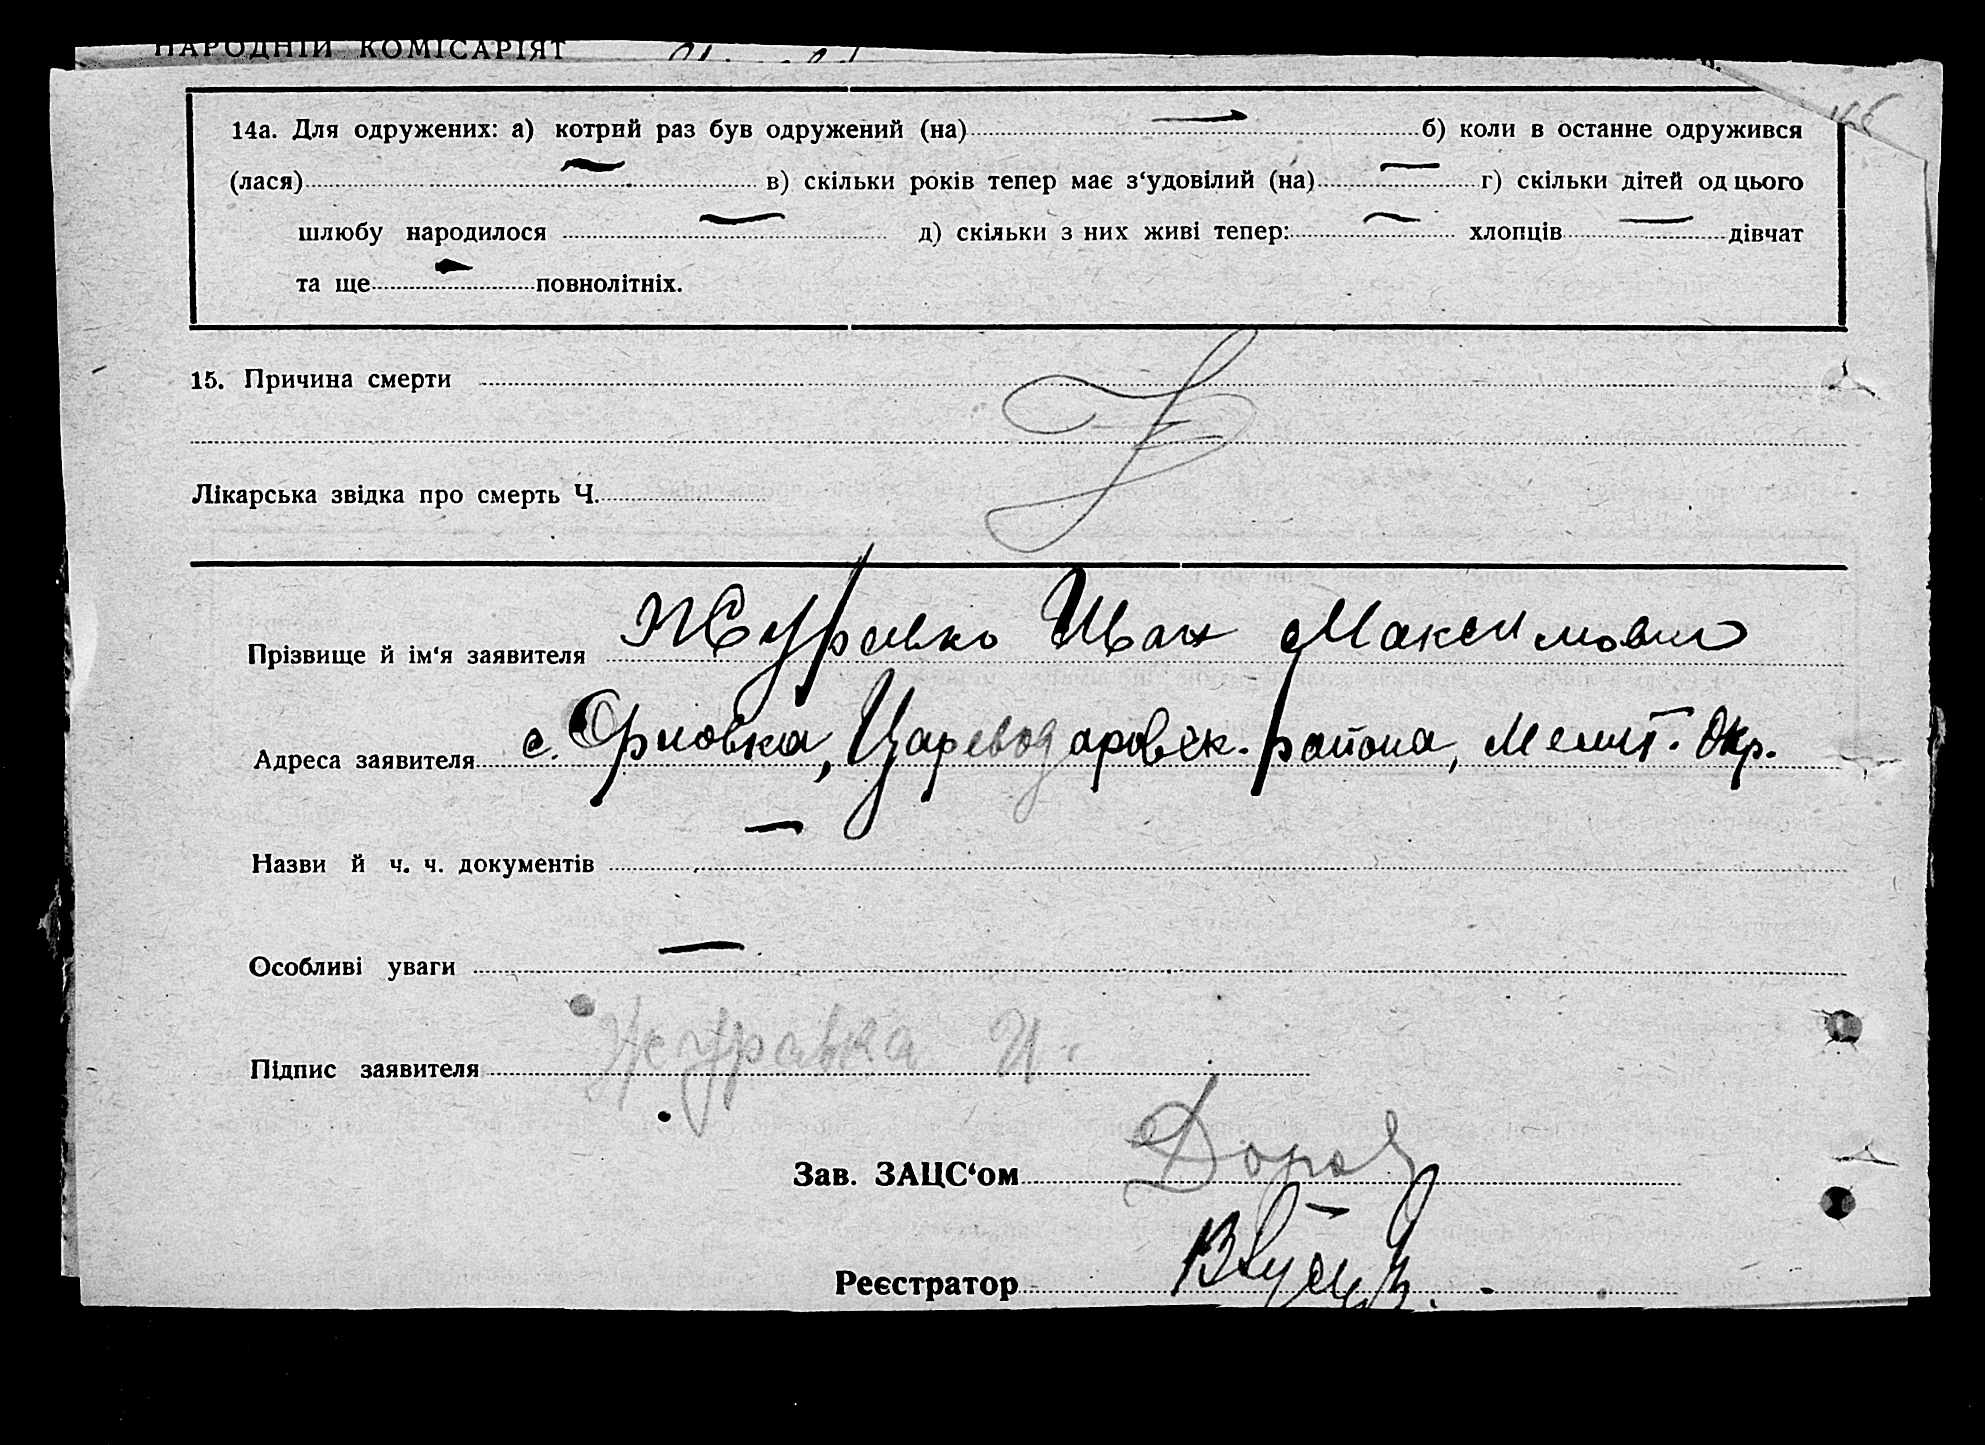 НАРОДНІЙ КОМІСАРІЯТ
14а. Для одружених: а) котрий раз був одружений (на) — б) коли в останне одружився
(лася) — в) скільки років тепер має з‘удовілий (на) — г) скільки дітей од цього
шлюбу народилося — д) скільки з них живі тепер: — хлопців — дівчат
та ще — повнолітніх.
15. Причина смерти
Лікарська звідка про смерть Ч.
Прізвище й ім‘я заявителя Журавко Иван Максимович
Адреса заявителя с. Орловка, Цареводаровск. района, Мелит. Окр.
Назви й ч. ч. документів —
Особливі уваги —
Підпис заявителя Журавка И.
Зав. ЗАЦС‘ом
Реєстратор